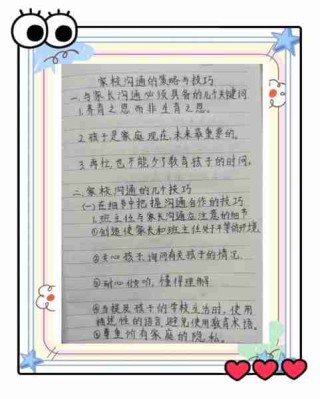 家校沟通的策略与技巧
一、与家长沟通必须具备的几个关键问
1.养育之恩而非生育之恩。
2.孩子是家庭现在,未来最重要的。
3.再忙也不能少了教育孩子的时间。
二、家校沟通的几个技巧
(一)在细节中把握沟通合作的技巧
1.班主任与家长沟通应注意的细节
①创造使家长和班主任处于平等的环境
②关心孩子,询问有关孩子的情况.
③耐心倾听,懂得理解.
④当提及孩子的学校生活时,使用
描述性的语言,避免使用教育术语。
⑤尊重所有家庭的隐私。